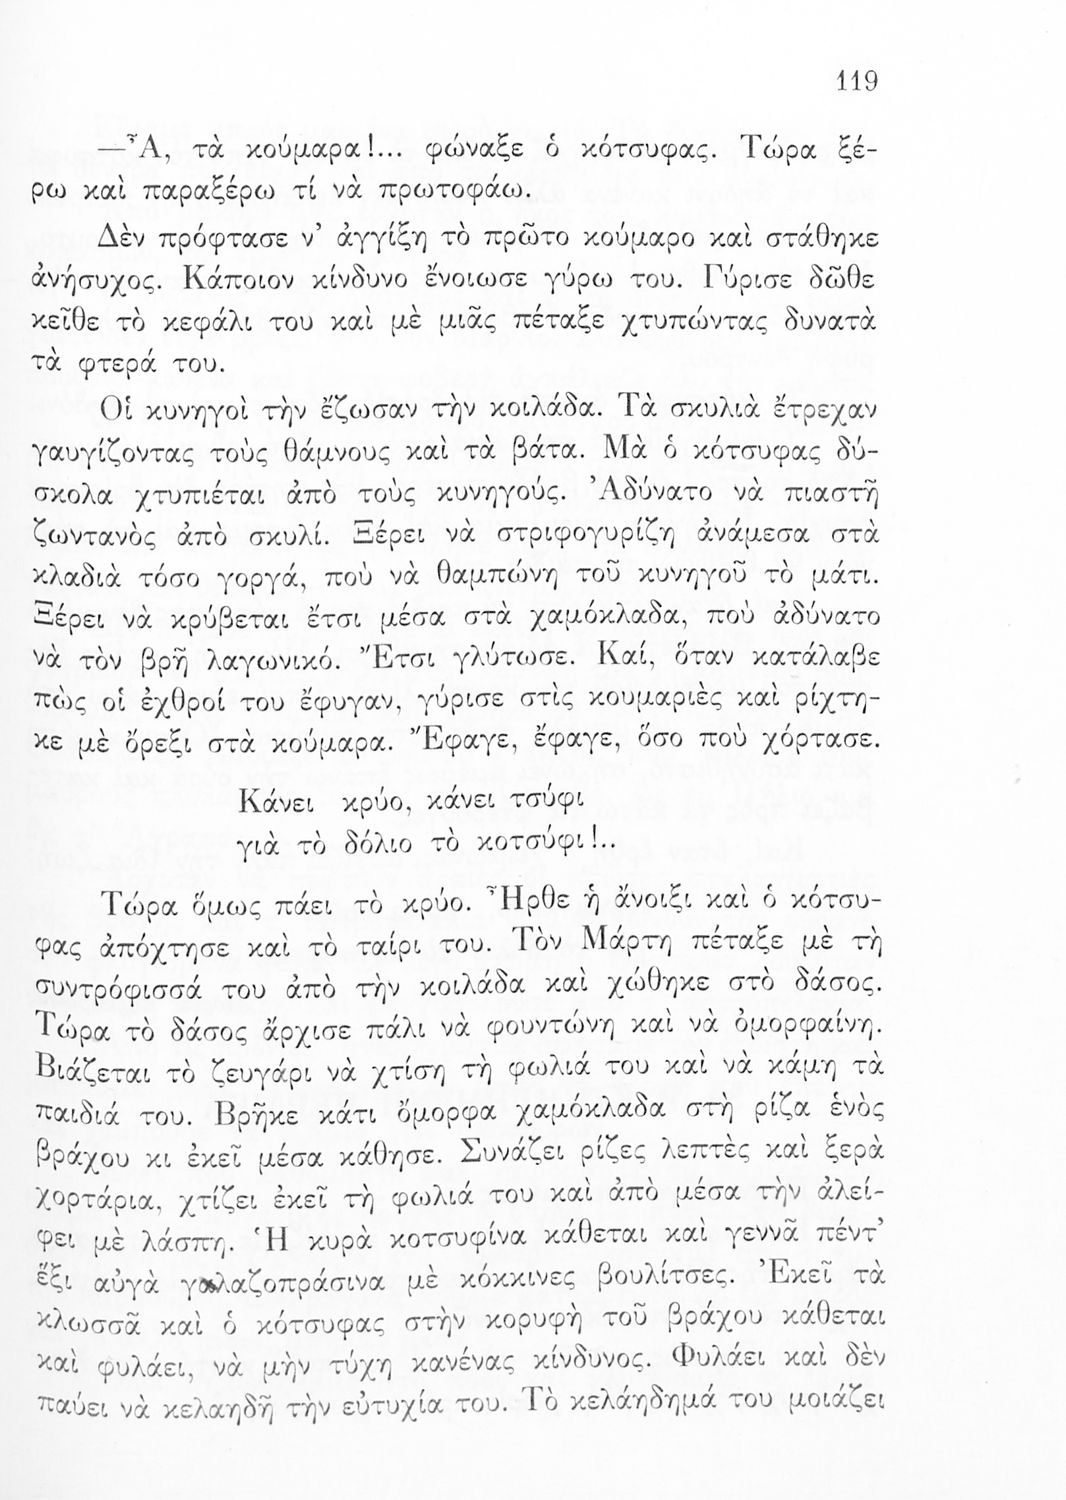 119
—Ἆ, τὰ κούμαρα!... φώναξε ὁ κότσυφας. Τώρα ξέ-
ρω καὶ παραξέρω τί νὰ πρωτοφάω.
Δὲν πρόφτασε ν᾿ ἀγγίξη τὸ πρῶτο κούμαρο καὶ στάθηκε
ἀνήσυχος. Κάποιον κίνδυνο ἔνοιωσε γύρω του. Γύρισε δῶθε
κεῖθε τὸ κεφάλι του καὶ μὲ μιᾶς πέταξε χτυπώντας δυνατὰ
τὰ φτερά του.
Οἱ κυνηγοὶ τὴν ἔζωσαν τὴν κοιλάδα. Τὰ σκυλιὰ ἔτρεχαν
γαυγίζοντας τοὺς θάμνους καὶ τὰ βάτα. Μὰ ὁ κότσυφας δύ-
σκολα χτυπιέται ἀπὸ τοὺς κυνηγούς. Ἀδύνατο νὰ πιαστῆ
ζωντανὸς ἀπὸ σκυλί. Ξέρει νὰ στριφογυρίζη ἀνάμεσα στὰ
κλαδιὰ τόσο γοργά, ποὺ νὰ θαμπώνη τοῦ κυνηγοῦ τὸ μάτι.
Ξέρει νὰ κρύβεται ἔτσι μέσα στὰ χαμόκλαδα, ποὺ ἀδύνατο
νὰ τὸν βρῆ λαγωνικό. Ἔτσι γλύτωσε. Καί, ὅταν κατάλαβε
πὼς οἱ ἐχθροί του ἔφυγαν, γύρισε στὶς κουμαριὲς καὶ ρίχτη-
κε μὲ ὄρεξι στὰ κούμαρα. Ἔφαγε, ἔφαγε, ὅσο ποὺ χόρτασε.
Κάνει κρύο, κάνει τσύφι
γιὰ τὸ δόλιο τὸ κοτσύφι!..
Τώρα ὅμως πάει τὸ κρύο. Ἦρθε ἡ ἄνοιξι καὶ ὁ κότσυ-
φας ἀπόχτησε καὶ τὸ ταίρι του. Τὸν Μάρτη πέταξε μὲ τὴ
συντρόφισσά του ἀπὸ τὴν κοιλάδα καὶ χώθηκε στὸ δάσος.
Τώρα τὸ δάσος ἄρχισε πάλι νὰ φουντώνη καὶ νὰ ὀμορφαίνη.
Βιάζεται τὸ ζευγάρι νὰ χτίση τὴ φωλιά του καὶ νὰ κάμη τὰ
παιδιά του. Βρῆκε κάτι ὄμορφα χαμόκλαδα στὴ ρίζα ἑνὸς
βράχου κι ἐκεῖ μέσα κάθησε. Συνάζει ρίζες λεπτὲς καὶ ξερὰ
χορτάρια, χτίζει ἐκεῖ τὴ φωλιά του καὶ ἀπὸ μέσα τὴν ἀλεί-
φει μὲ λάσπη. Ἡ κυρὰ κοτσυφίνα κάθεται καὶ γεννᾶ πέντ᾿
ἕξι αὐγὰ γαλαζοπράσινα μὲ κόκκινες βουλίτσες. Ἐκεῖ τὰ
κλωσσᾶ καὶ ὁ κότσυφας στὴν κορυφὴ τοῦ βράχου κάθεται
καὶ φυλάει, νὰ μὴν τύχη κανένας κίνδυνος. Φυλάει καὶ δὲν
παύει νὰ κελαηδῆ τὴν εὐτυχία του. Τὸ κελάηδημά του μοιάζει